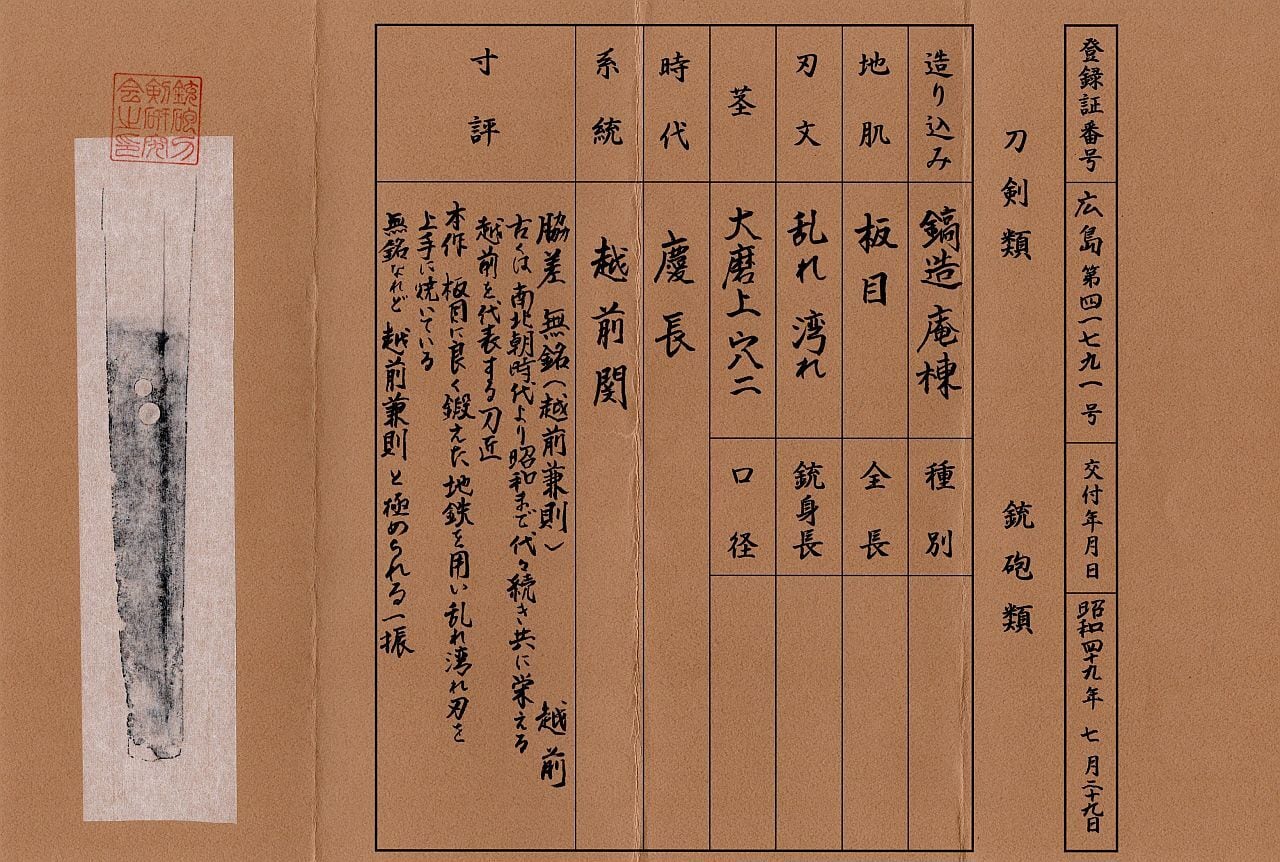 登録証番号 広島 第四一七九一号 交付年月日 昭和四十九年 七月二十九日
刀剣類 銃砲類
造り込み 鎬造庵棟 種別
地肌 板目 全長
刃文 乱れ 湾れ 銃身長
茎 大磨上 穴二 口径
時代 慶長
系統 越前関
寸評
脇差 無銘(越前兼則) 越前
古くは南北朝時代より昭和まで代々続き共に栄える
越前を代表する刀匠
本作 板目に良く鍛えた地鉄を用い乱れ湾れ刃を
上手に焼いている
無銘なれど 越前兼則 と極められる一振
銃砲刀
剣研究
会之印